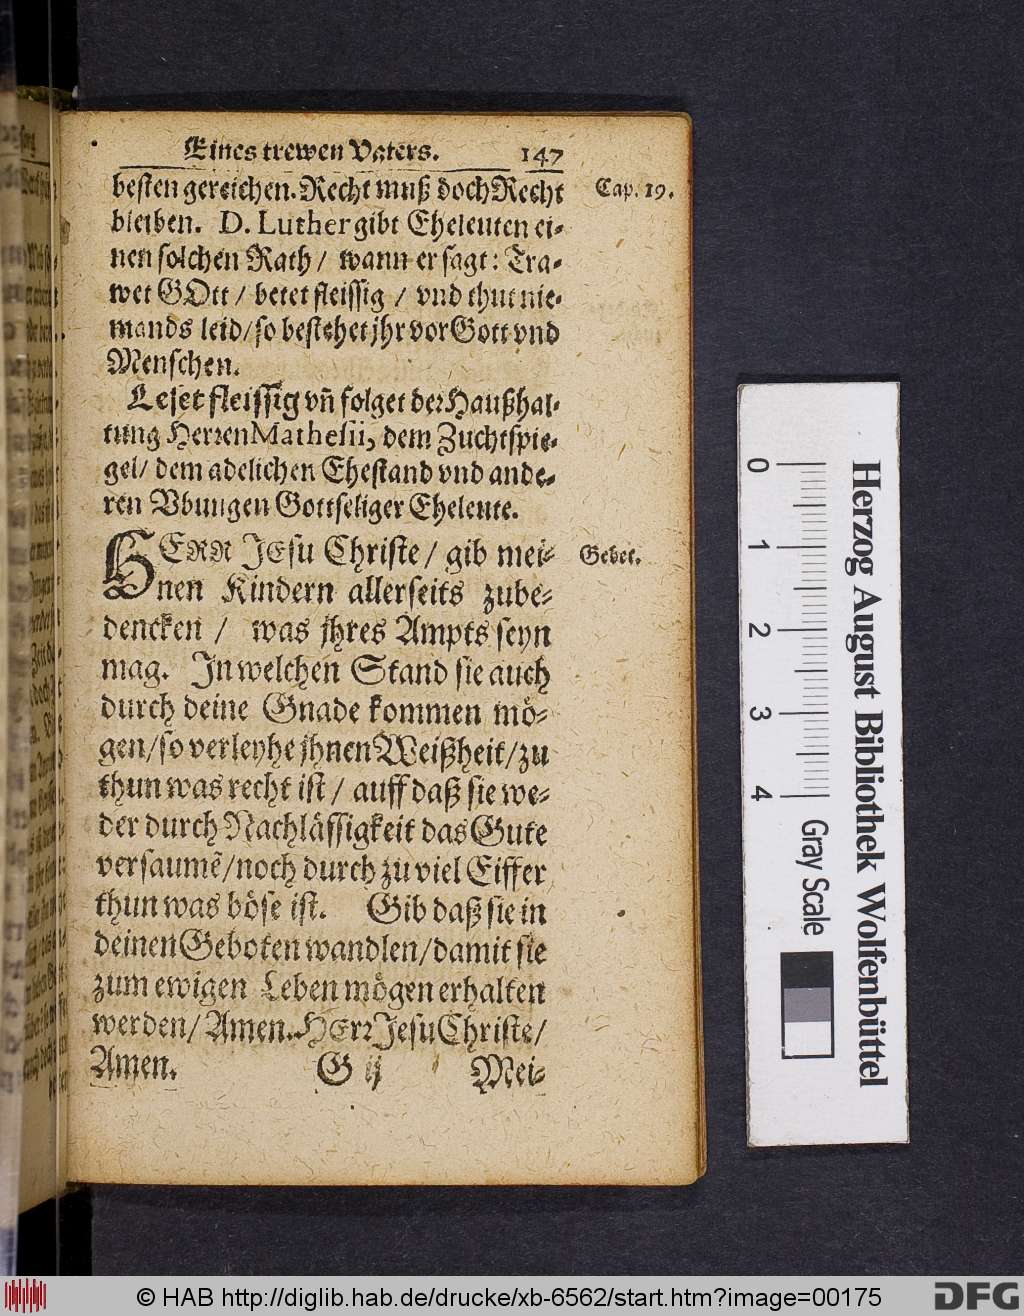 Eines trewen Vaters. 147
besten gereichen. Recht muß doch Recht
Cap. 19.
bleiben. D. Luther gibt Eheleuten ei-
nen solchen Rath / wann er sagt: Tra-
wet GOtt / betet fleissig / vnd thut nie-
mands leid/so bestehet jhr vor Gott vnd
Menschen.
Leset fleissig vñ folget der Haußhal-
tung Herren Mathesii, dem Zuchtspie-
gel/ dem adelichen Ehestand vnd ande-
ren Vbungen Gottseliger Eheleute.
HERR JEsu Christe / gib mei-
Gebet.
nen Kindern allerseits zube-
dencken / was jhres Ampts seyn
mag. In welchen Stand sie auch
durch deine Gnade kommen mö-
gen/so verleyhe jhnen Weißheit/zu
thun was recht ist / auff daß sie we-
der durch Nachlässigkeit das Gute
versaumẽ/noch durch zu viel Eiffer
thun was böse ist. Gib daß sie in
deinen Geboten wandlen/damit sie
zum ewigen Leben mögen erhalten
werden/Amen. HErr Jesu Christe/
Amen. G ij Mei-
0 1 2 3 4
Gray Scale
Herzog August Bibliothek Wolfenbüttel
© HAB http://diglib.hab.de/drucke/xb-6562/start.htm?image=00175
DFG